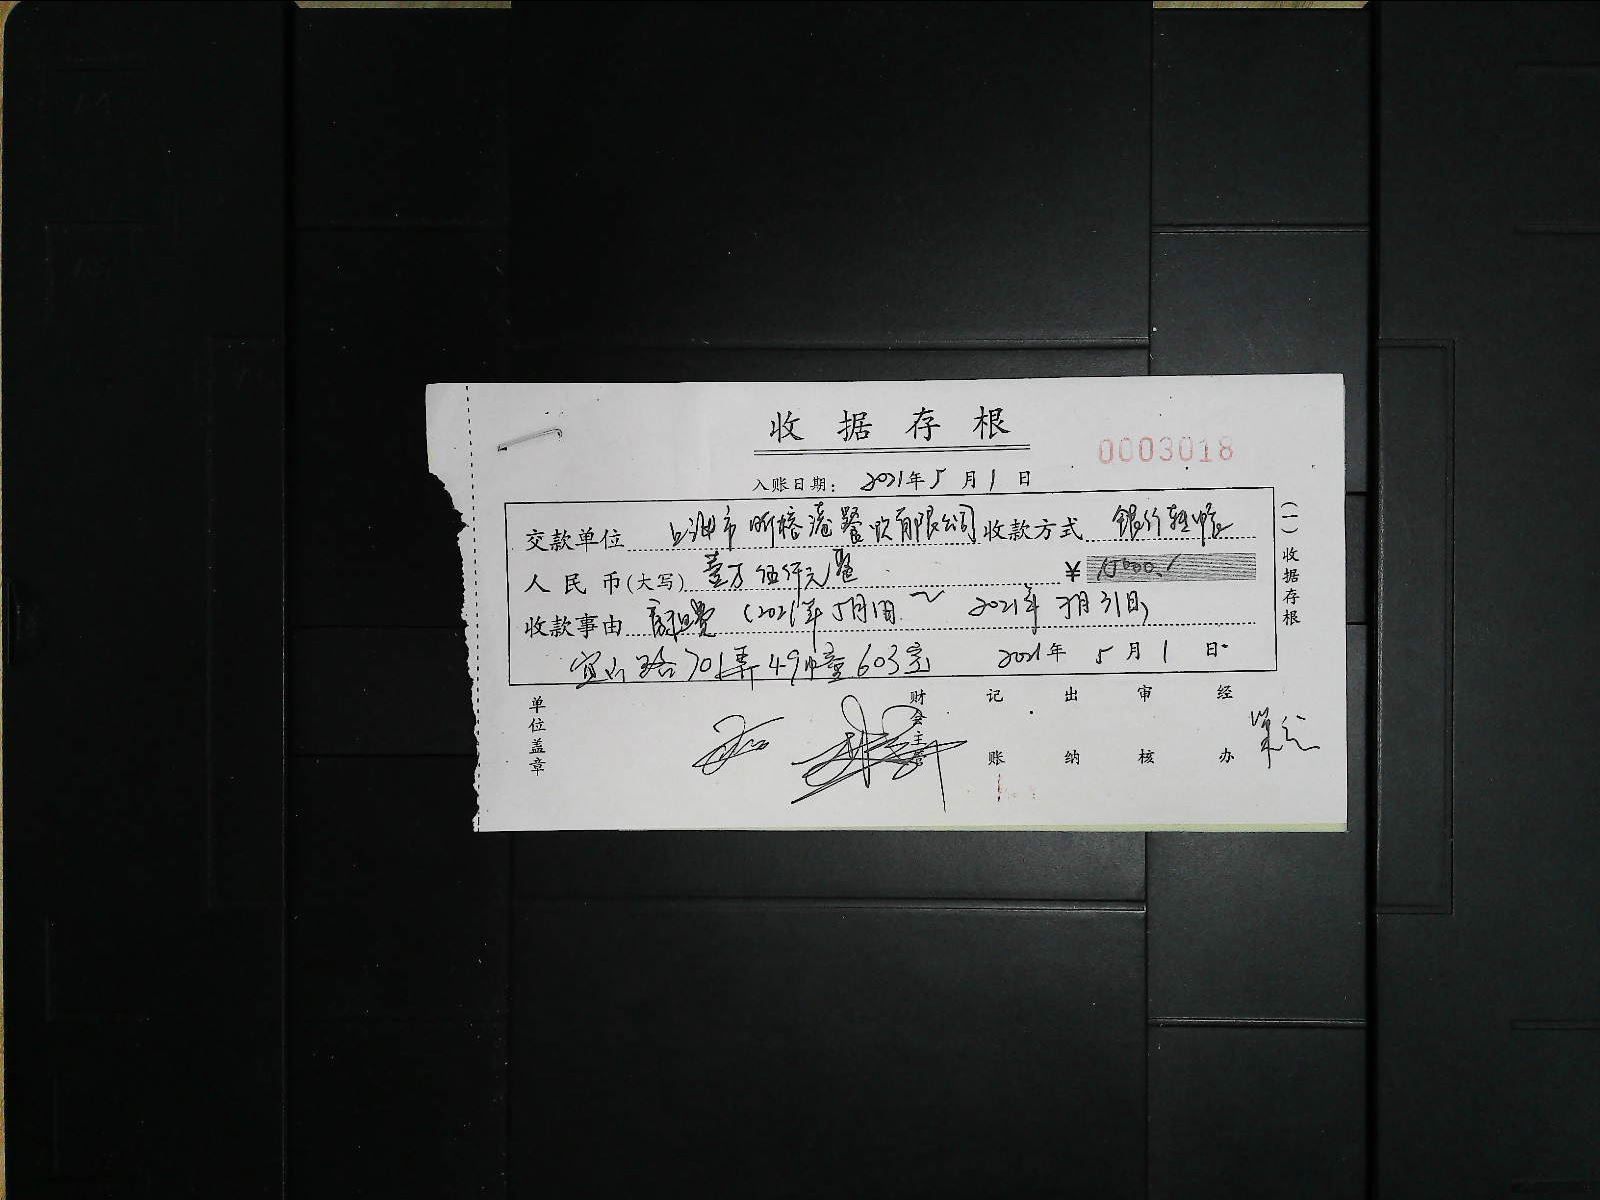 收据存根
0003018
入账日期: 2021年5月1日
交款单位 上海市昕榕滬餐饮有限公司 收款方式 银行转帐
人民币(大写) 壹万伍仟元整 ¥ 15000./
收款事由 房租费 (2021年5月1日~2021年7月31日)
宜山路701弄49幢603室 2021年5月1日
单位盖章 财会主管 记账 出纳 审核 经办
(一)收据存根